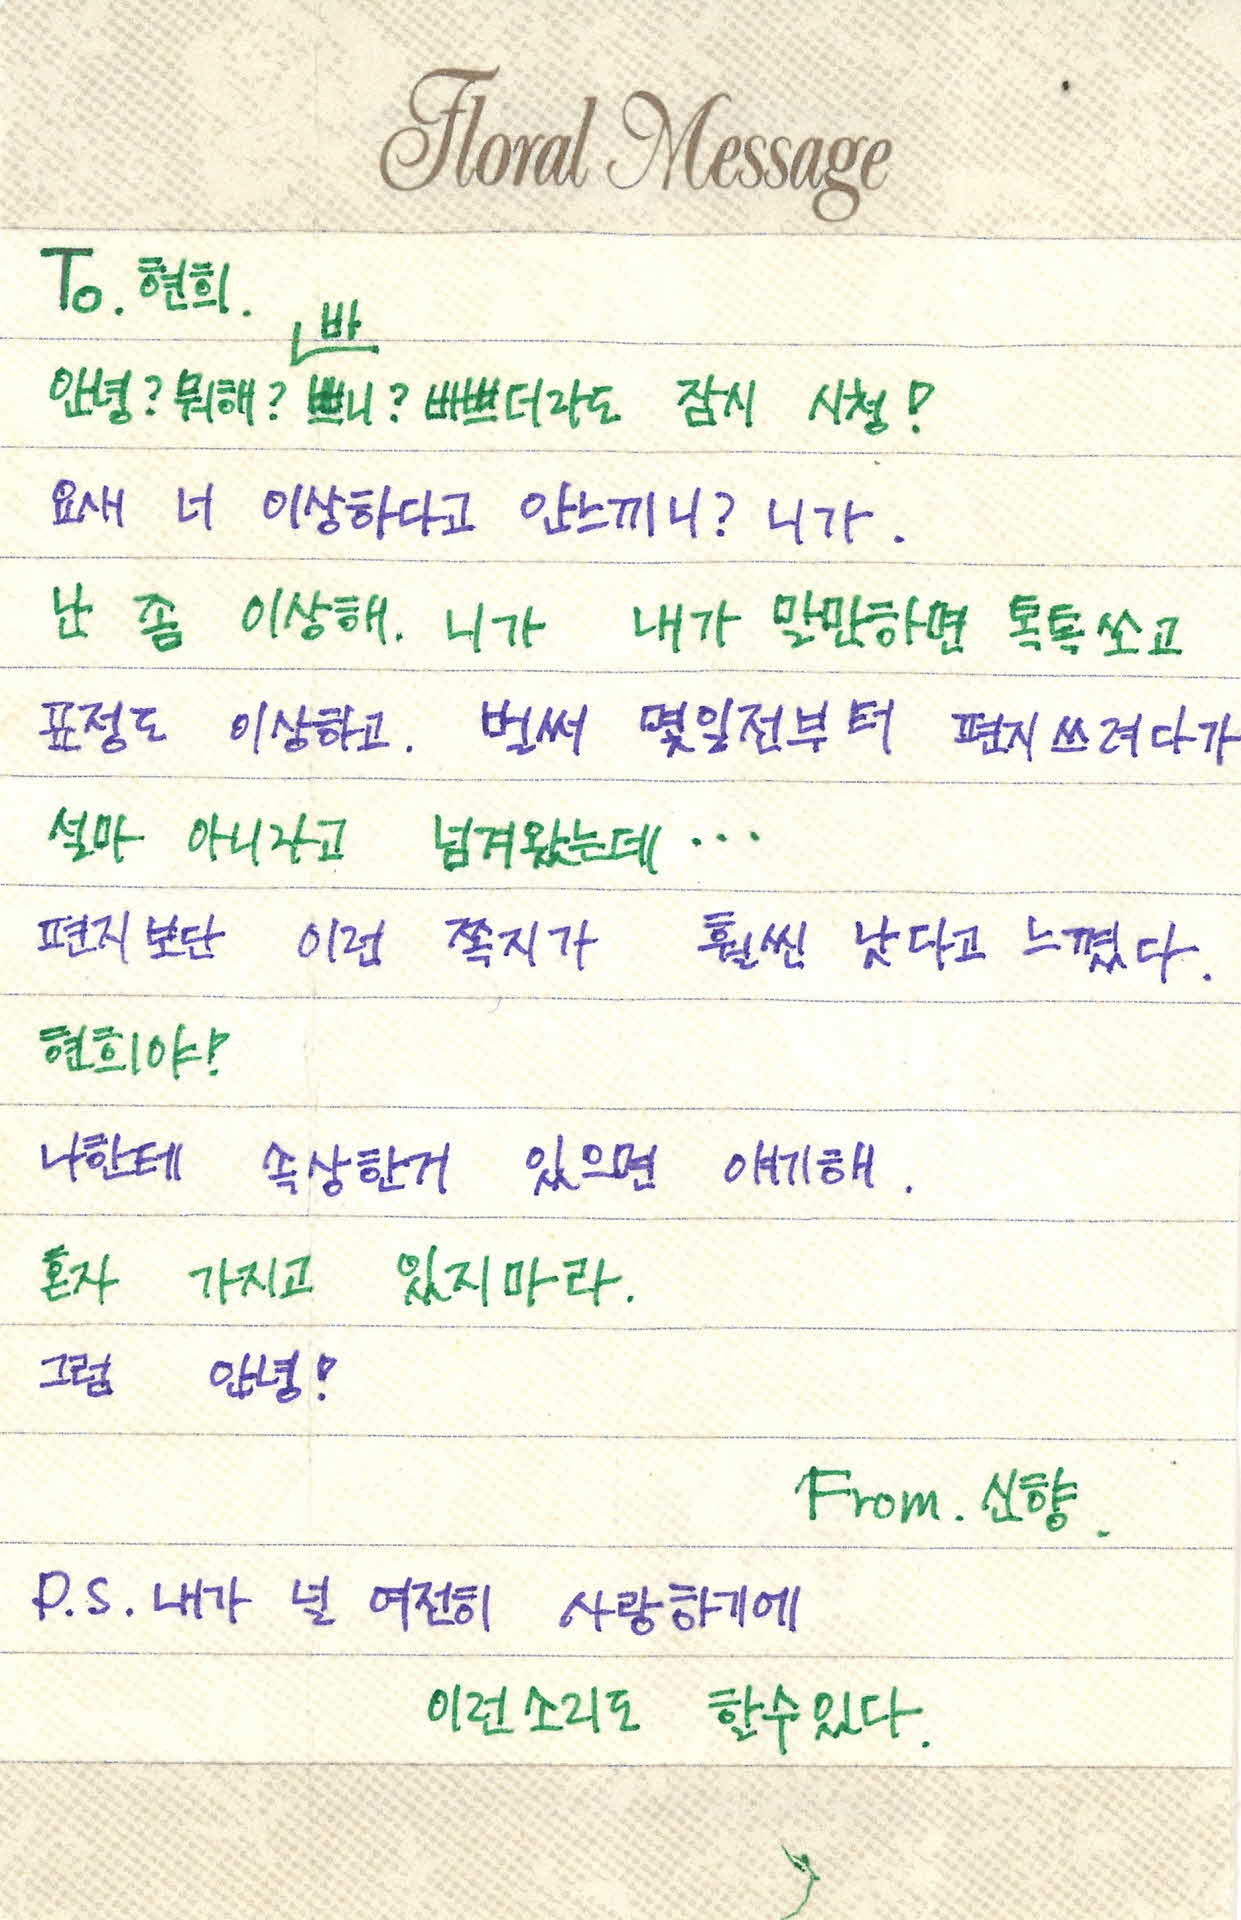 Floral Message
To. 현희.
바
안녕? 뭐해? 쁘니? 바쁘더라도 잠시 시청!
요새 너 이상하다고 안느끼니? 니가.
난 좀 이상해. 니가 내가 말만하면 톡톡쏘고
표정도 이상하고. 벌써 몇일전부터 편지쓰려다가
설마 아니라고 넘겨왔는데···
편지보단 이런 쪽지가 훨씬 낫다고 느꼈다.
현희야!
나한테 속상한거 있으면 얘기해.
혼자 가지고 있지마라.
그럼 안녕!
From. 신향.
P.S. 내가 널 여전히 사랑하기에
이런소리도 할수있다.